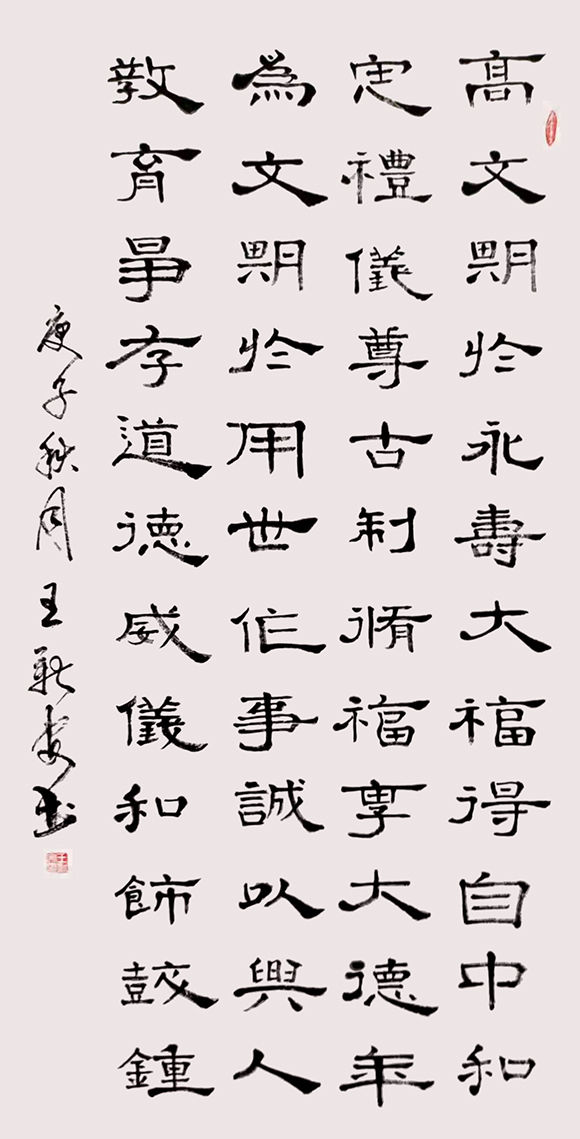 高文期於永壽大福得自中和
定禮儀尊古制脩福享大德年
為文期於用世作事誠以與人
教育存道德威儀和飾鼓鐘
庚子秋月王新安书